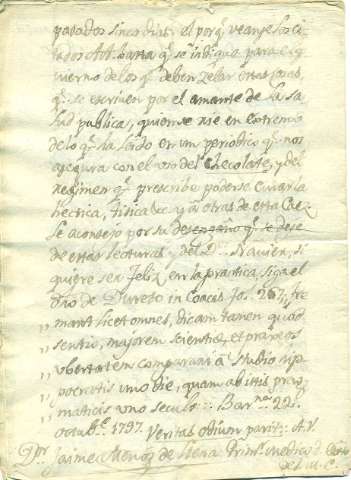 pasados sinco
Art. basta qe. se indique para el go
vierno de los qe. deben zelar otras cosas,
qe. se escriven por el amante de la sa
lud publica, quien se rie en extremo
de lo qe. ha leido en un periodico qe. nos
asegura con el uso del chocolate, y del
regimen qe. prescribe poderse curar la
hectica, tisica &c. y a otras de esta
se aconsejo por su desengaño qe. se dexe
de estas lecturas y del Dr. si
quiere ser feliz en la practica, siga el
dicho de Dureto in Coacas fo. 267,, fre
,, mant licet omnes, dicam tamen quod
,, sentio, majorem scientiæ, et
,, ubertatem comparari à studio ip
,, pocratis uno die, quam ab istis prag
,, maticis uno seculo.. Barna. 22
octubre. 1797. Veritas odium parit: A.V.
Dor. Jaime Menos de Llena Primr. medico
del M. C.